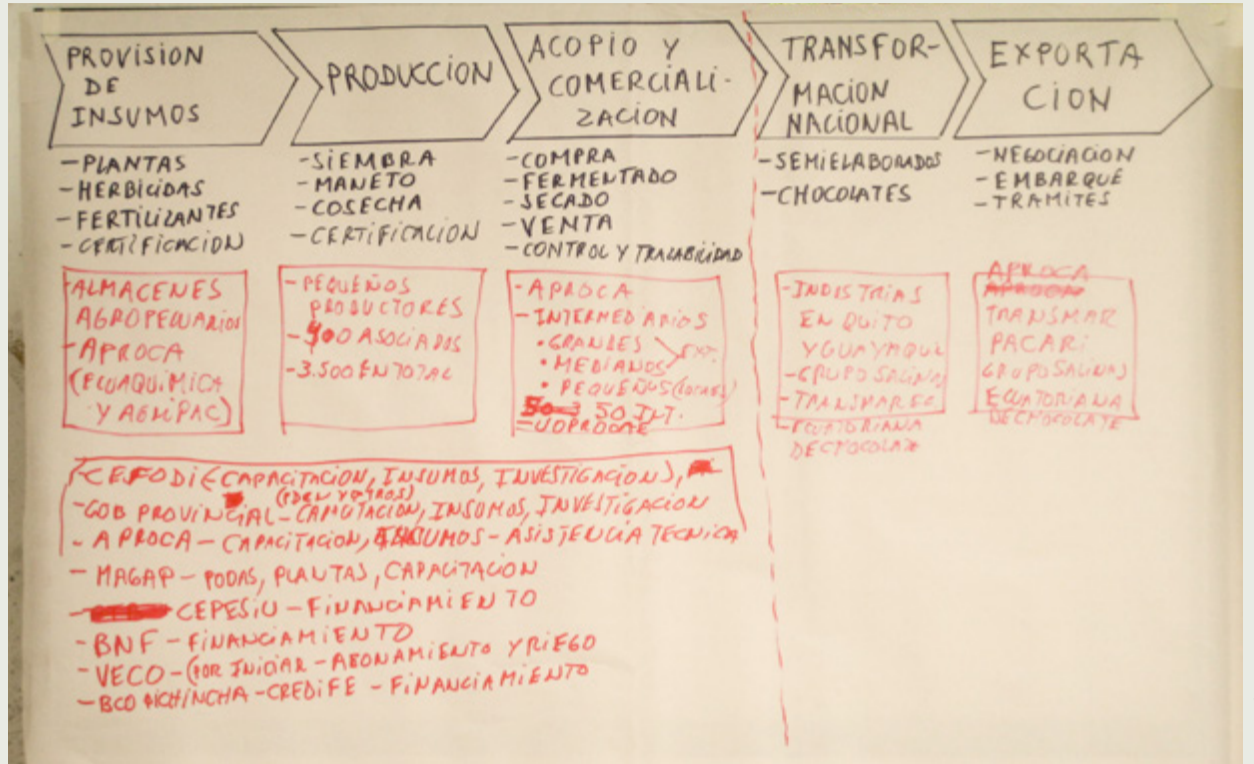 PROVISION
DE
INSUMOS
PRODUCCION
ACOPIO Y
COMERCIALI-
ZACION
TRANSFOR-
MACION
NACIONAL
EXPORTA
CION
-PLANTAS
-HERBICIDAS
-FERTILIZANTES
-CERTIFICACION
-SIEMBRA
-MANEJO
-COSECHA
-CERTIFICACION
-COMPRA
-FERMENTADO
-SECADO
-VENTA
-CONTROL Y TRAZABILIDAD
-SEMIELABORADOS
-CHOCOLATES
-NEGOCIACION
-EMBARQUE
-TRAMITES
-ALMACENES
AGROPECUARIOS
-APROCA
(ECUAQUIMICA
Y AGRIPAC)
-PEQUEÑOS
PRODUCTORES
-900 ASOCIADOS
-3.500 EN TOTAL
-APROCA
-INTERMEDIARIOS
• GRANDES
• MEDIANOS
EXP.
• PEQUEÑOS (LOCALES)
50 INT.
-UOPROCAE
-INDUSTRIAS
EN QUITO
Y GUAYAQUIL
-GRUPO SALINAS
-TRANSMAREC
-ECUATORIANA
DE CHOCOLATE
APROCA
TRANSMAR
PACARI
GRUPO SALINAS
ECUATORIANA
DE CHOCOLATE
-CEFODI (CAPACITACION, INSUMOS, INVESTIGACION),
(PDRN Y OTROS)
-GOB PROVINCIAL - CAPACITACION, INSUMOS, INVESTIGACION
- APROCA - CAPACITACION, INSUMOS - ASISTENCIA TECNICA
- MAGAP - PODAS, PLANTAS, CAPACITACION
- CEPESIU - FINANCIAMIENTO
- BNF - FINANCIAMIENTO
- VECO - (POR INICIAR - ABONAMIENTO Y RIEGO
- BCO PICHINCHA - CREDIFE - FINANCIAMIENTO